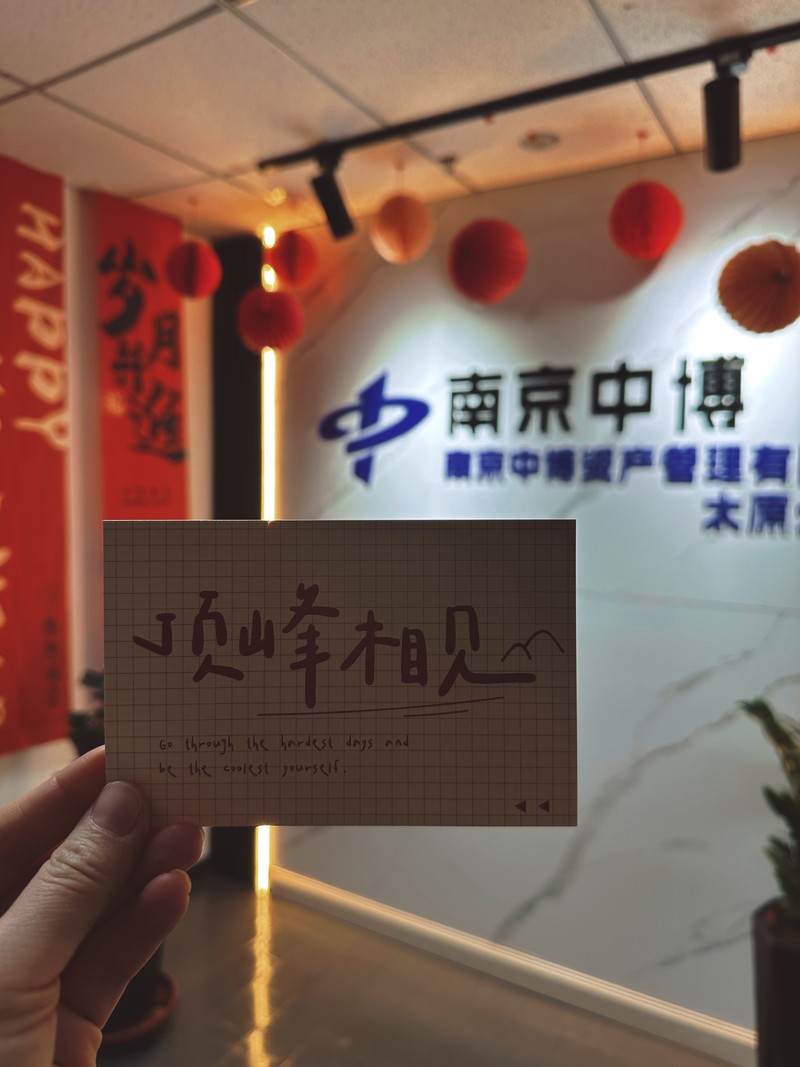 HAPPY
岁月并進
南京中博
南京中博资产管理有
太原
顶峰相见
Go through the hardest days and
be the coolest yourself.